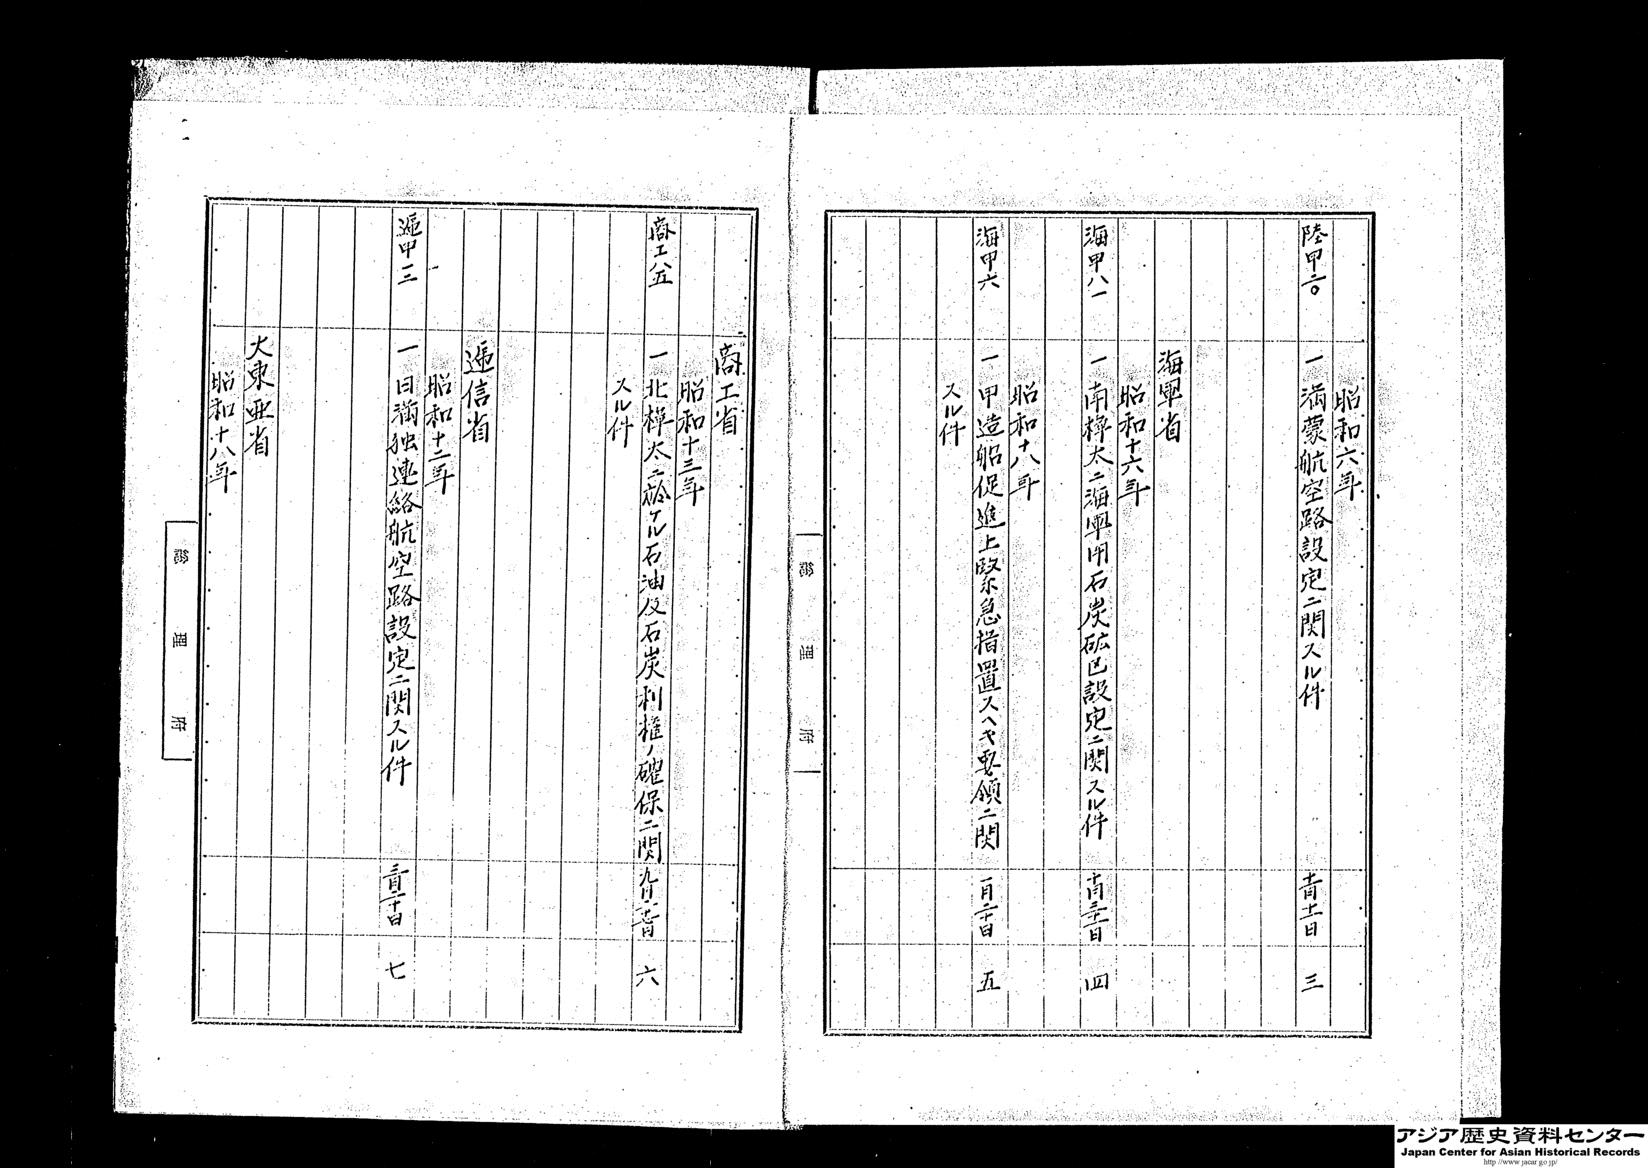 昭和六年
陸甲二〇 一 満蒙航空路設定ニ関スル件 十一月十一日 三
海軍省
昭和十六年
海甲八一 一 南樺太ニ海軍用石炭砿区設定ニ関スル件 四
昭和十八年
海甲六 一 甲造船促進上緊急措置スヘキ要領ニ関 一月二十日 五
スル件
総理府
商工省
昭和十三年
商工八五 一 北樺太ニ於ケル石油及石炭利権ノ確保ニ関 六
スル件
逓信省
昭和十二年
逓甲一三 一 日満独連絡航空路設定ニ関スル件 三月二十日 七
大東亜省
昭和十八年
総理府
アジア歴史資料センター
Japan Center for Asian Historical Records
http://www.jacar.go.jp/